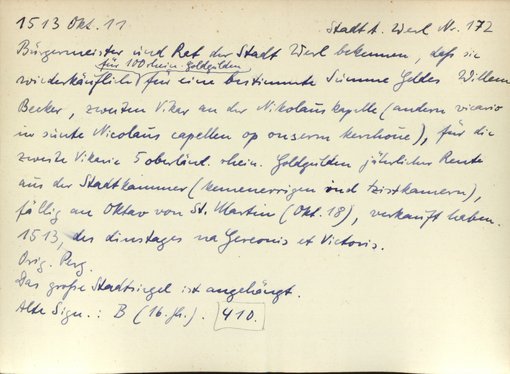 1513 Okt. 11 Stadt A. Werl Nr. 172
Bürgermeister und Rat der Stadt Werl bekennen, daß sie
für 100 rhein. Goldgulden
wiederkäuflich für eine bestimmte Summe Geldes Willem
Becker, zweiten Vikar an der Nikolauskapelle (andern vicario
in sunte Nicolaus capellen op onserm kerchove), für die
zweite Vikarie 5 oberländ. rhein. Goldgulden jährlicher Rente
aus der Stadtkammer (kemenerrigen und tzisekamern),
fällig an Oktav von St. Martin (Okt. 18), verkauft haben.
1513, des dinstages na Gereonis et Victoris.
Orig. Perg.
Das große Stadtsiegel ist angehängt.
Alte Sign.: B (16. Jh.). 410.